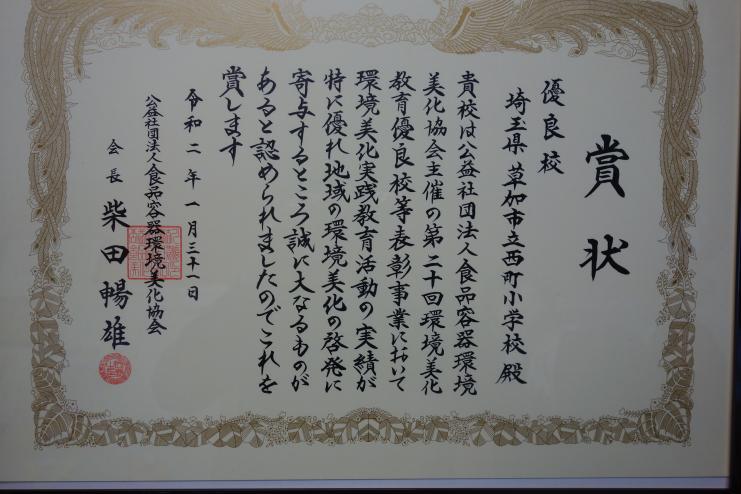 賞状
優良校
埼玉県 草加市立西町小学校 殿
貴校は公益社団法人食品容器環境
美化協会主催の第二十回環境美化
教育優良校等表彰事業において
環境美化実践教育活動の実績が
特に優れ地域の環境美化の啓発に
寄与するところ誠に大なるものが
あると認められましたのでこれを
賞します
令和二年一月三十一日
公益社団法人食品容器環境美化協会
会長 柴田暢雄